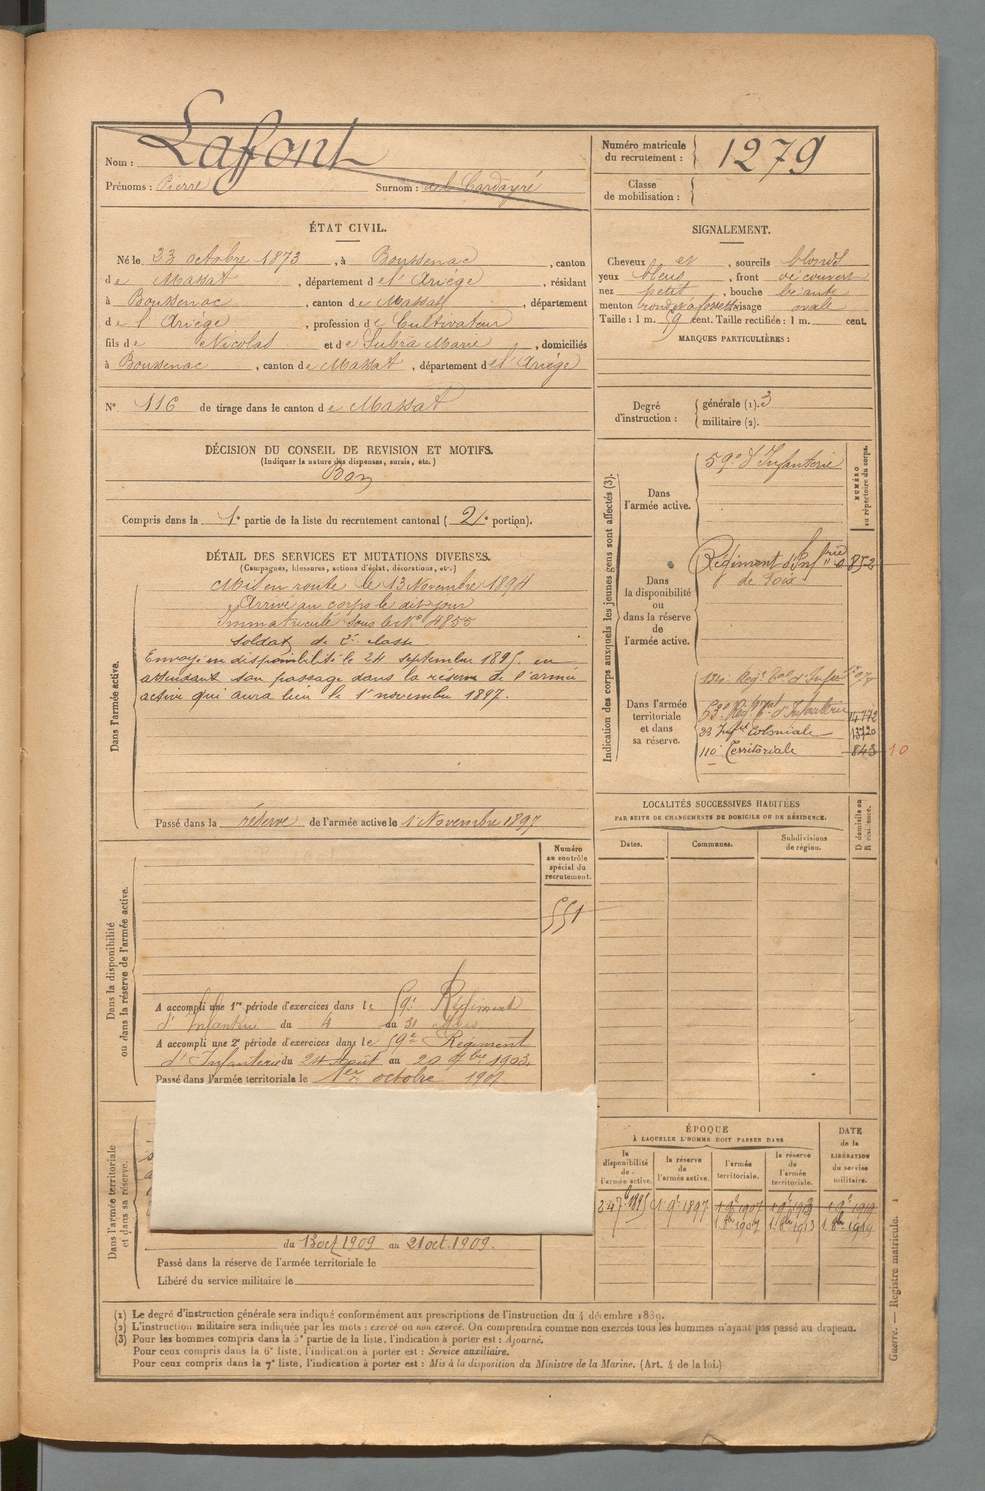 Nom : Lafont
Prénoms : Pierre Surnom : dit Cardayré
Numéro matricule du recrutement : 1279
Classe de mobilisation :
ÉTAT CIVIL.
Né le 23 octobre 1873, à Boussenac, canton
de Massat, département de l'Ariége, résidant
à Boussenac, canton de Massat, département
de l'Ariége, profession de Cultivateur
fils de Nicolas et de Subra Marie, domiciliés
à Boussenac, canton de Massat, département de l'Ariége
N° 116 de tirage dans le canton de Massat
SIGNALEMENT.
Cheveux et, sourcils blonds
yeux bleus, front découvert
nez petit, bouche béante
menton rond visage ovale
Taille : 1 m. 59 cent. Taille rectifiée : 1 m. cent.
MARQUES PARTICULIÈRES :
Degré d'instruction :
générale (1). 3
militaire (2).
DÉCISION DU CONSEIL DE REVISION ET MOTIFS.
(Indiquer la nature des dispenses, sursis, etc.)
Bon
Compris dans la 1e partie de la liste du recrutement cantonal (2e portion).
DÉTAIL DES SERVICES ET MUTATIONS DIVERSES.
(Campagnes, blessures, actions d'éclat, décorations, etc.)
Dans l'armée active.
Mis en route le 13 Novembre 1894
Arrivé au corps le dit jour
Immatriculé sous le N° 4855
soldat de 2e classe
Envoyé en disponibilité le 24 septembre 1895. en
attendant son passage dans la réserve de l'armée
active qui aura lieu le 1er novembre 1897.
Passé dans la réserve de l'armée active le 1er Novembre 1897
Indication des corps auxquels les jeunes gens sont affectés (3).
NUMÉRO au répertoire du corps.
Dans l'armée active.
59e d'Infanterie
Dans la disponibilité ou dans la réserve de l'armée active.
Régiment d'Infrie 852
de Foix
Dans l'armée territoriale et dans sa réserve.
53e Régt d'Infanterie 14772
23 Infrie Coloniale 13720
110e Territoriale 843 10
LOCALITÉS SUCCESSIVES HABITÉES
PAR SUITE DE CHANGEMENTS DE DOMICILE OU DE RÉSIDENCE.
Dates. Communes. Subdivisions de région.
D domicile ou R résidence.
Dans la disponibilité ou dans la réserve de l'armée active.
Numéro au contrôle spécial du recrutement.
551
A accompli une 1re période d'exercices dans le 59e Régiment
d'Infanterie du 4 au 31
A accompli une 2e période d'exercices dans le 59e Régiment
d'Infanterie du 24 Août au 20 7bre 1903.
Passé dans l'armée territoriale le 1er octobre 1907
Dans l'armée territoriale et dans sa réserve.
du 13 oct 1909 au 21 oct. 1909.
Passé dans la réserve de l'armée territoriale le
Libéré du service militaire le
ÉPOQUE
À LAQUELLE L'HOMME DOIT PASSER DANS
la disponibilité de l'armée active.
la réserve de l'armée active.
l'armée territoriale.
la réserve de l'armée territoriale.
DATE de la LIBÉRATION du service militaire.
24 7bre 1895 1 9e 1897 1 9e 1907 1 9e 1913 1 9e 1919
1 8bre 1907 1 8bre 1913 1 8bre 1919
(1) Le degré d'instruction générale sera indiqué conformément aux prescriptions de l'instruction du 4 décembre 1889.
(2) L'instruction militaire sera indiquée par les mots : exercé ou non exercé. On comprendra comme non exercés tous les hommes n'ayant pas passé au drapeau.
(3) Pour les hommes compris dans la 5e partie de la liste, l'indication à porter est : Ajourné.
Pour ceux compris dans la 6e liste, l'indication à porter est : Service auxiliaire.
Pour ceux compris dans la 7e liste, l'indication à porter est : Mis à la disposition du Ministre de la Marine. (Art. 4 de la loi.)
Guerre. — Registre matricule. 1